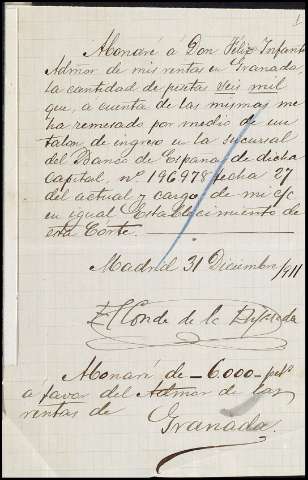 Abonaré á Don Féliz Infante
Admor de mis rentas en Granada
la cantidad de pesetas seis mil
que, a cuenta de las mismas me
ha remesado por medio de un
talon de ingreso en la sucursal
del Banco de España de dicha
capital, nº 196978 fecha 27
del actual y cargo de mi c/c
en igual Establecimiento de
esta Córte.
Madrid 31 Diciembre/911
El Conde de la
Abonaré de - 6.000 - pts
a favor del Admor de las
rentas de
Granada.